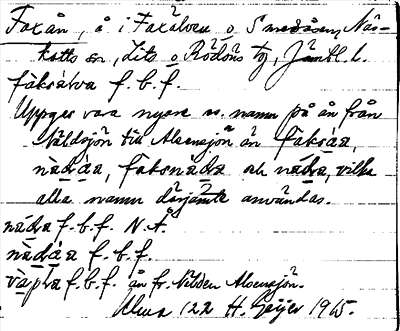 Faxån, å i Faxälven o Smedåsen, Näs-
kotts sn, Lits o Rödöns tg, Jämtl. l.
fàksrátva f. b. f.
Uppges vara nyare sv. namn på ån från
Näldsjön till Alsensjön än faksáa,
nædáa, faksnǽdra och nædra, vilka
alla namn därjämte användas.
nædra f. b. f. N. Å.
nædáa f. b. f.
f. b. f. ån fr. Nälden Alsensjön.
Ulma 122 H. Geijer 1915.